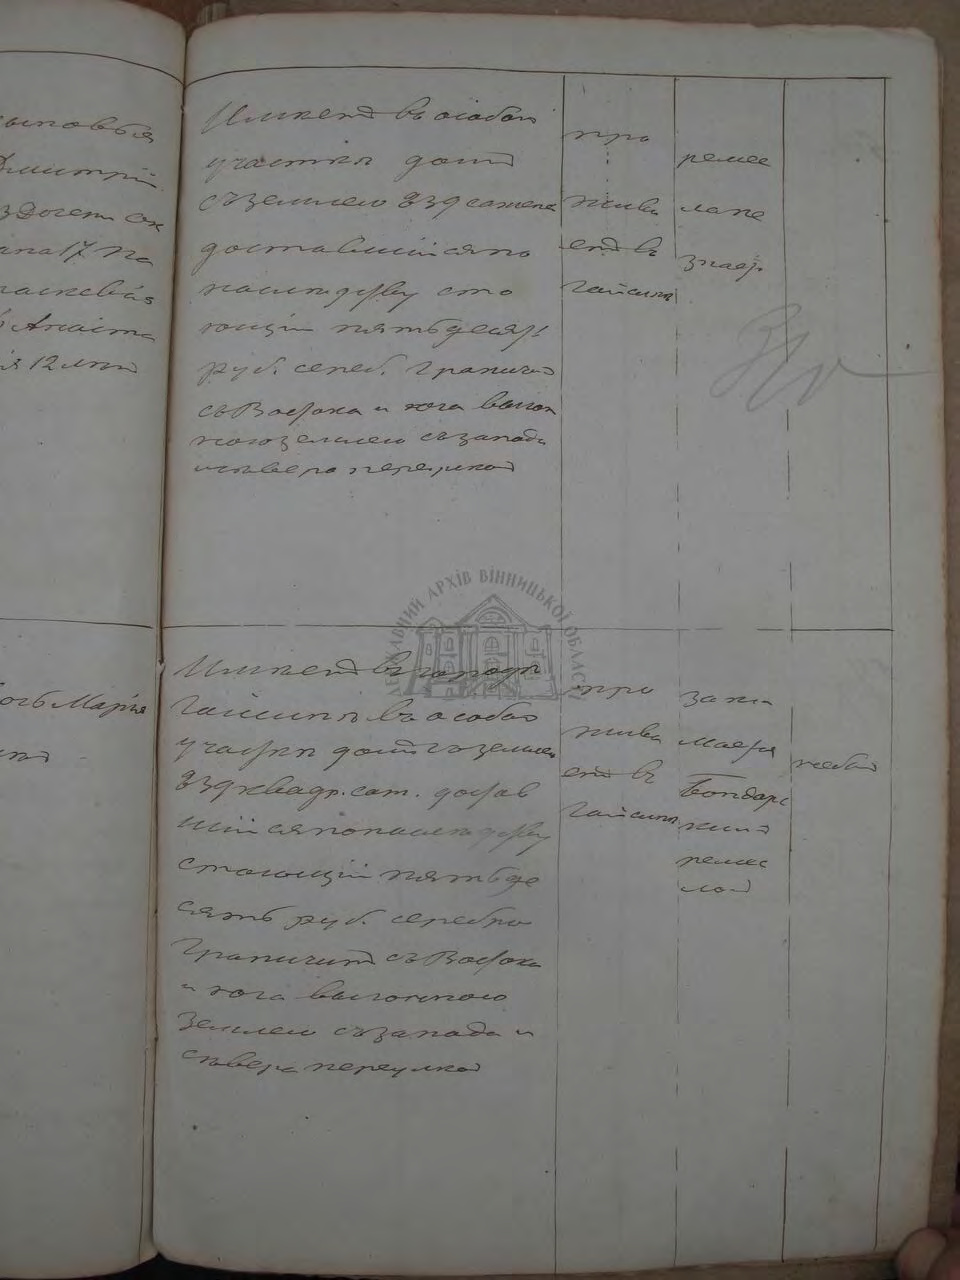 сыновья
Дмитрій
17 На
Анаста
12 лѣтъ
Имѣетъ въ особой
участкѣ домъ
съ землею 839 сажень
доставшійся по
наслѣдству сто
ющій пятьдесят
руб. сереб. граничит
съ Востока и юга выгон
ною землею съ запада
и сѣвера переулкой
про
жива
етъ въ
Гайсинѣ
ремес
ла не
знаер
Имѣетъ въ городѣ
Гайсинѣ въ особой
участкѣ домъ съ землею
839 квадр. саж. достав
шійся по наслѣдству
стоющій пятьде
сятъ руб. серебра
граничитъ съ Востока
и юга выгонною
землею съ запада и
сѣвера переулкой
про
жива
етъ въ
Гайсинѣ
зани
мается
Бондарс
кимъ
ремес
лой
дочь Марія
лѣтъ
ДЕРЖАВНИЙ АРХІВ ВІННИЦЬКОЇ ОБЛАСТІ